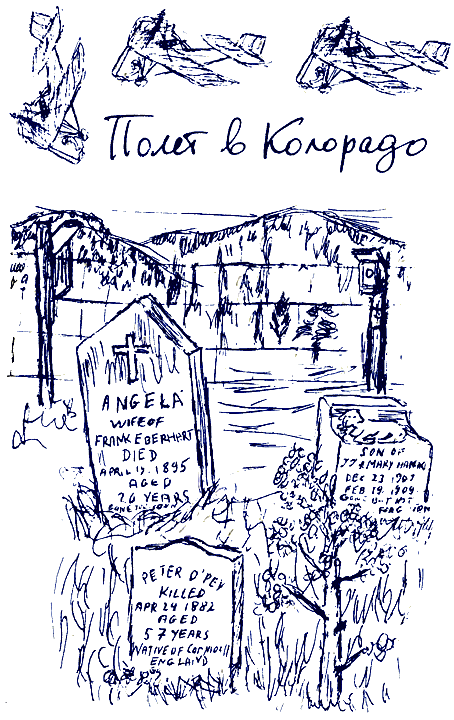 Полет в Колорадо
ANGELA
WIFE OF
FRANK EBERHART
DIED
APRIL 17. 1895
AGED
26 YEARS
SON OF
MARY
DEC 23 1907
FEB 19. 1909.
PETER O'PEY
KILLED
APR 24 1882
AGED
57 YEARS
NATIVE OF
ENGLAND